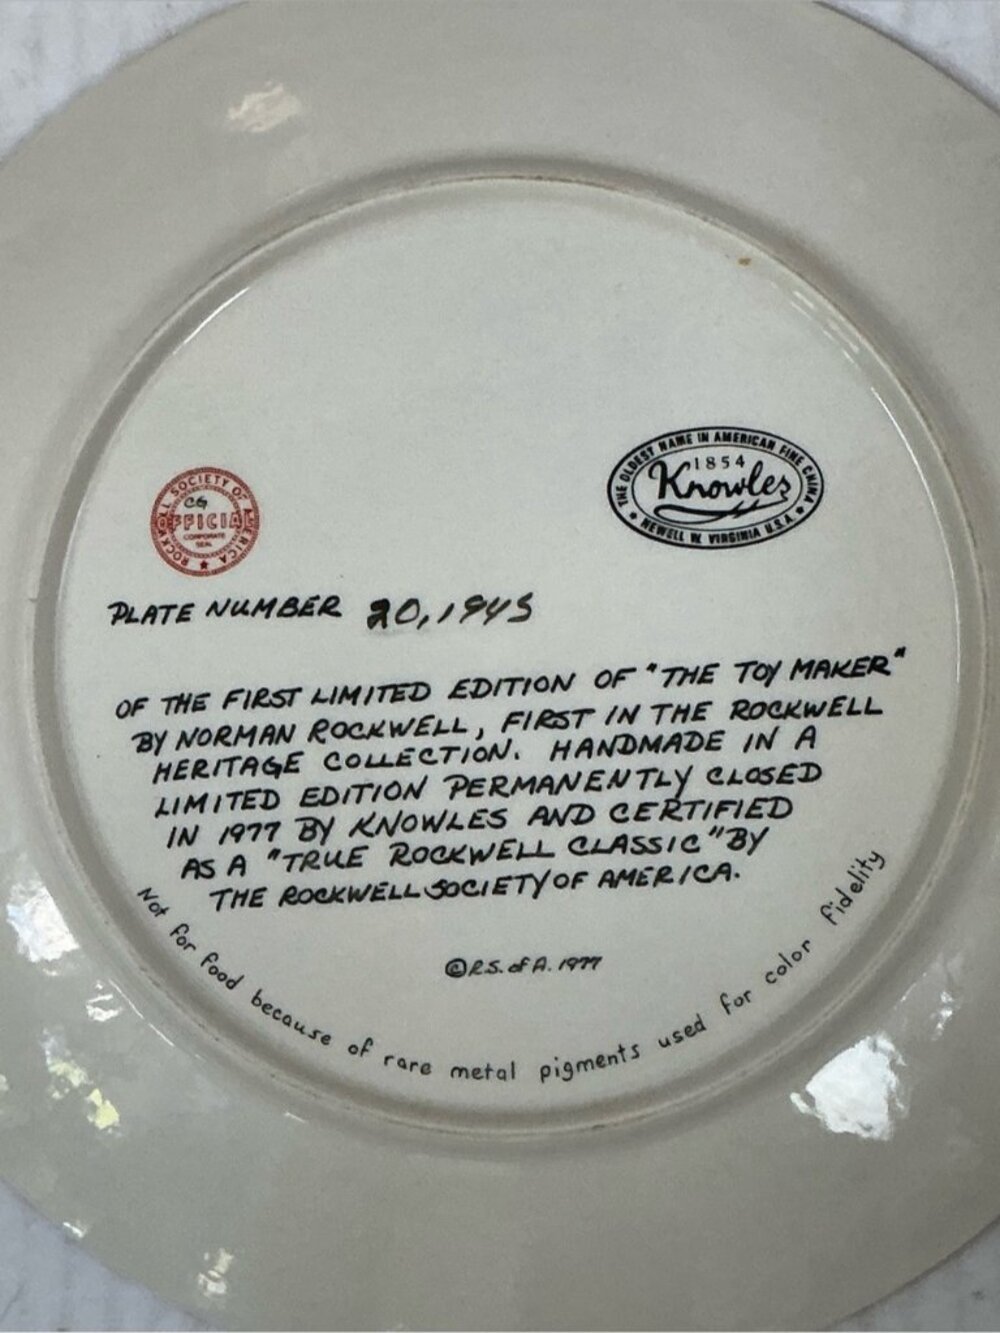 THE OLDEST NAME IN AMERICAN FINE CHINA
1854
Knowles
NEWELL W. VIRGINIA U.S.A.
ROCKWELL SOCIETY OF AMERICA
CG
OFFICIAL
CORPORATE
SEAL
PLATE NUMBER 20,194S
OF THE FIRST LIMITED EDITION OF "THE TOY MAKER"
BY NORMAN ROCKWELL, FIRST IN THE ROCKWELL
HERITAGE COLLECTION. HANDMADE IN A
LIMITED EDITION PERMANENTLY CLOSED
IN 1977 BY KNOWLES AND CERTIFIED
AS A "TRUE ROCKWELL CLASSIC" BY
THE ROCKWELL SOCIETY OF AMERICA.
©R.S. of A. 1977
Not for food because of rare metal pigments used for color fidelity